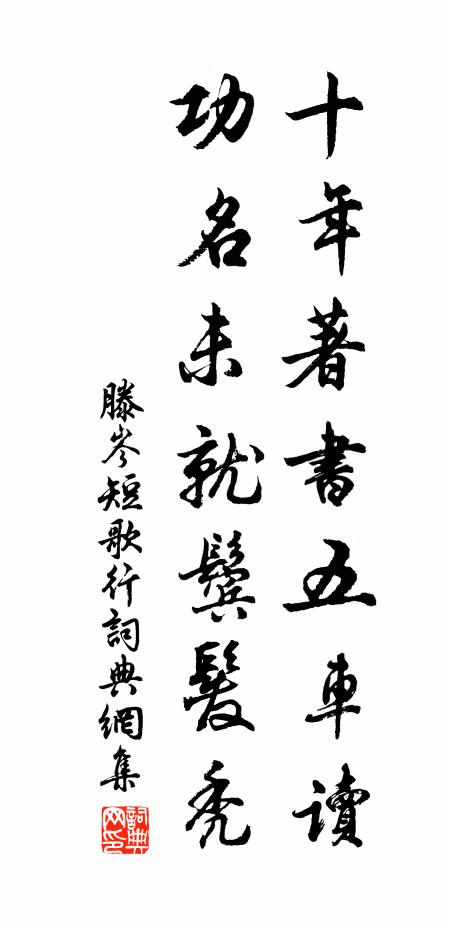 十年著書五車讀
功名未就鬢髮禿
滕岑短歌行詞典網集
詞典網印